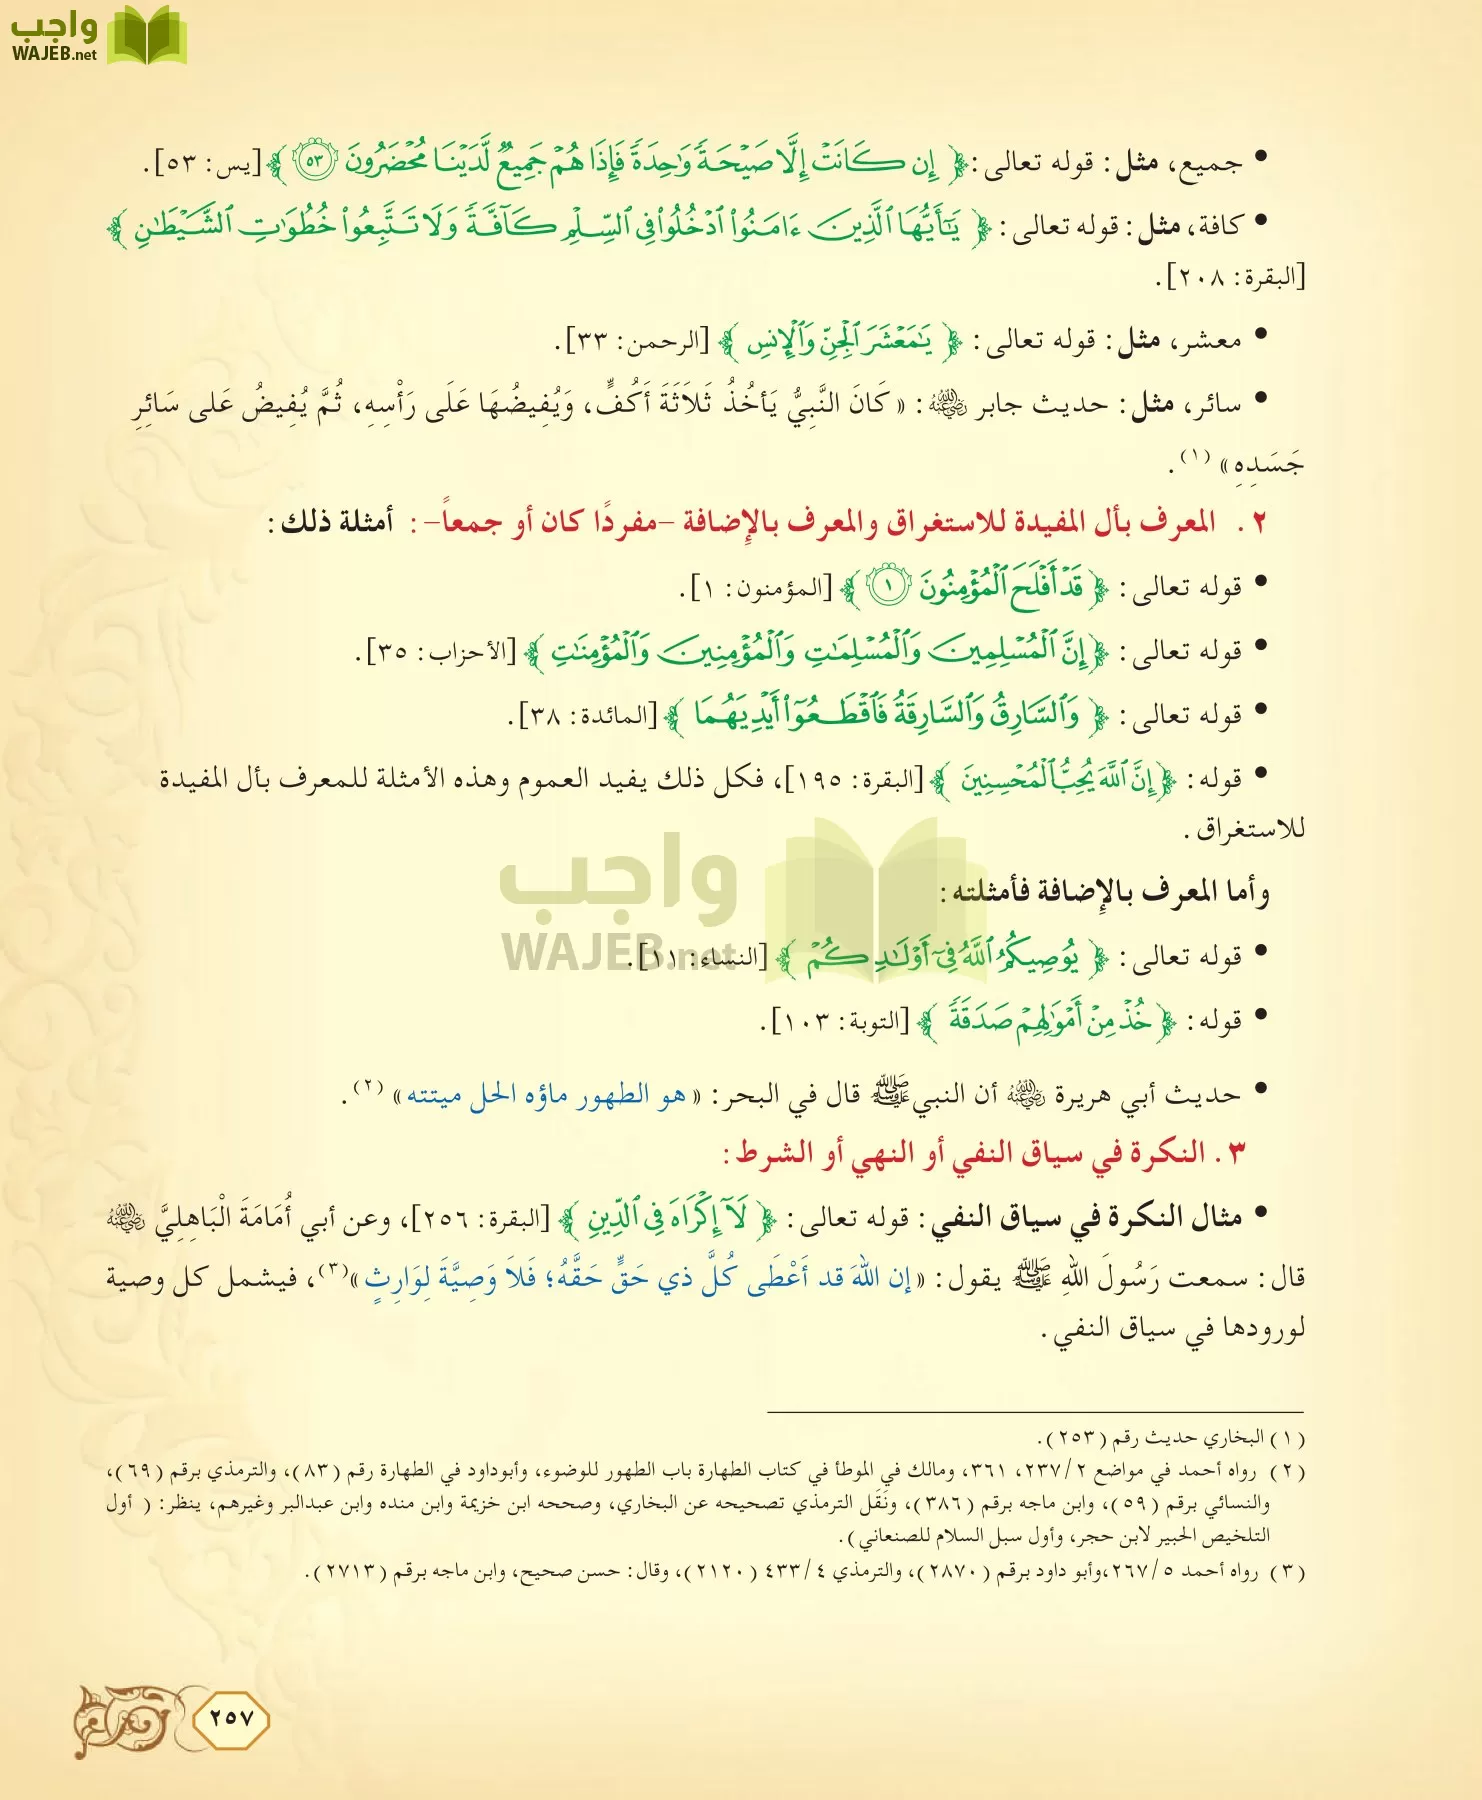 واجب
WAJEB.net
• جميع، مثل: قوله تعالى: ﴿ إِن كَانَتْ إِلَّا صَيْحَةً وَٰحِدَةً فَإِذَا هُمْ جَمِيعٌ لَّدَيْنَا مُحْضَرُونَ ٥٣ ﴾ [يس: ٥٣].
• كافة، مثل: قوله تعالى: ﴿ يَٰٓأَيُّهَا ٱلَّذِينَ ءَامَنُوا۟ ٱدْخُلُوا۟ فِى ٱلسِّلْمِ كَآفَّةً وَلَا تَتَّبِعُوا۟ خُطُوَٰتِ ٱلشَّيْطَٰنِ ﴾
[البقرة: ٢٠٨].
• معشر، مثل: قوله تعالى: ﴿ يَٰمَعْشَرَ ٱلْجِنِّ وَٱلْإِنسِ ﴾ [الرحمن: ٣٣].
• سائر، مثل: حديث جابر رضي الله عنه: «كَانَ النَّبِيُّ يَأخُذُ ثَلاَثَةَ أَكُفٍّ، وَيُفِيضُهَا عَلَى رَأْسِهِ، ثُمَّ يُفِيضُ عَلى سَائِرِ
جَسَدِهِ» (١).
٢. المعرف بأل المفيدة للاستغراق والمعرف بالإضافة –مفردًا كان أو جمعاً–: أمثلة ذلك:
• قوله تعالى: ﴿ قَدْ أَفْلَحَ ٱلْمُؤْمِنُونَ ١ ﴾ [المؤمنون: ١].
• قوله تعالى: ﴿ إِنَّ ٱلْمُسْلِمِينَ وَٱلْمُسْلِمَٰتِ وَٱلْمُؤْمِنِينَ وَٱلْمُؤْمِنَٰتِ ﴾ [الأحزاب: ٣٥].
• قوله تعالى: ﴿ وَٱلسَّارِقُ وَٱلسَّارِقَةُ فَٱقْطَعُوٓا۟ أَيْدِيَهُمَا ﴾ [المائدة: ٣٨].
• قوله: ﴿ إِنَّ ٱللَّهَ يُحِبُّ ٱلْمُحْسِنِينَ ﴾ [البقرة: ١٩٥]، فكل ذلك يفيد العموم وهذه الأمثلة للمعرف بأل المفيدة
للاستغراق.
وأما المعرف بالإضافة فأمثلته:
• قوله تعالى: ﴿ يُوصِيكُمُ ٱللَّهُ فِىٓ أَوْلَٰدِكُمْ ﴾ [النساء: ١١].
واجب
WAJEB.net
• قوله: ﴿ خُذْ مِنْ أَمْوَٰلِهِمْ صَدَقَةً ﴾ [التوبة: ١٠٣].
• حديث أبي هريرة رضي الله عنه أن النبي ﷺ قال في البحر: «هو الطهور ماؤه الحل ميتته» (٢).
٣. النكرة في سياق النفي أو النهي أو الشرط:
• مثال النكرة في سياق النفي: قوله تعالى: ﴿ لَآ إِكْرَاهَ فِى ٱلدِّينِ ﴾ [البقرة: ٢٥٦]، وعن أبي أُمَامَةَ الْبَاهِلِيَّ رضي الله عنه
قال: سمعت رَسُولَ اللهِ ﷺ يقول: «إن اللهَ قد أعْطَى كُلَّ ذي حَقٍّ حَقَّهُ؛ فَلاَ وَصِيَّةَ لِوَارِثٍ»(٣)، فيشمل كل وصية
لورودها في سياق النفي.
(١) البخاري حديث رقم (٢٥٣).
(٢) رواه أحمد في مواضع ٢/ ٢٣٧، ٣٦١، ومالك في الموطأ في كتاب الطهارة باب الطهور للوضوء، وأبوداود في الطهارة رقم (٨٣)، والترمذي برقم (٦٩)،
والنسائي برقم (٥٩)، وابن ماجه برقم (٣٨٦)، ونَقَل الترمذي تصحيحه عن البخاري، وصححه ابن خزيمة وابن منده وابن عبدالبر وغيرهم، ينظر: ( أول
التلخيص الحبير لابن حجر، وأول سبل السلام للصنعاني).
(٣) رواه أحمد ٥/ ٢٦٧،وأبو داود برقم (٢٨٧٠)، والترمذي ٤/ ٤٣٣ (٢١٢٠)، وقال: حسن صحيح، وابن ماجه برقم (٢٧١٣).
٢٥٧